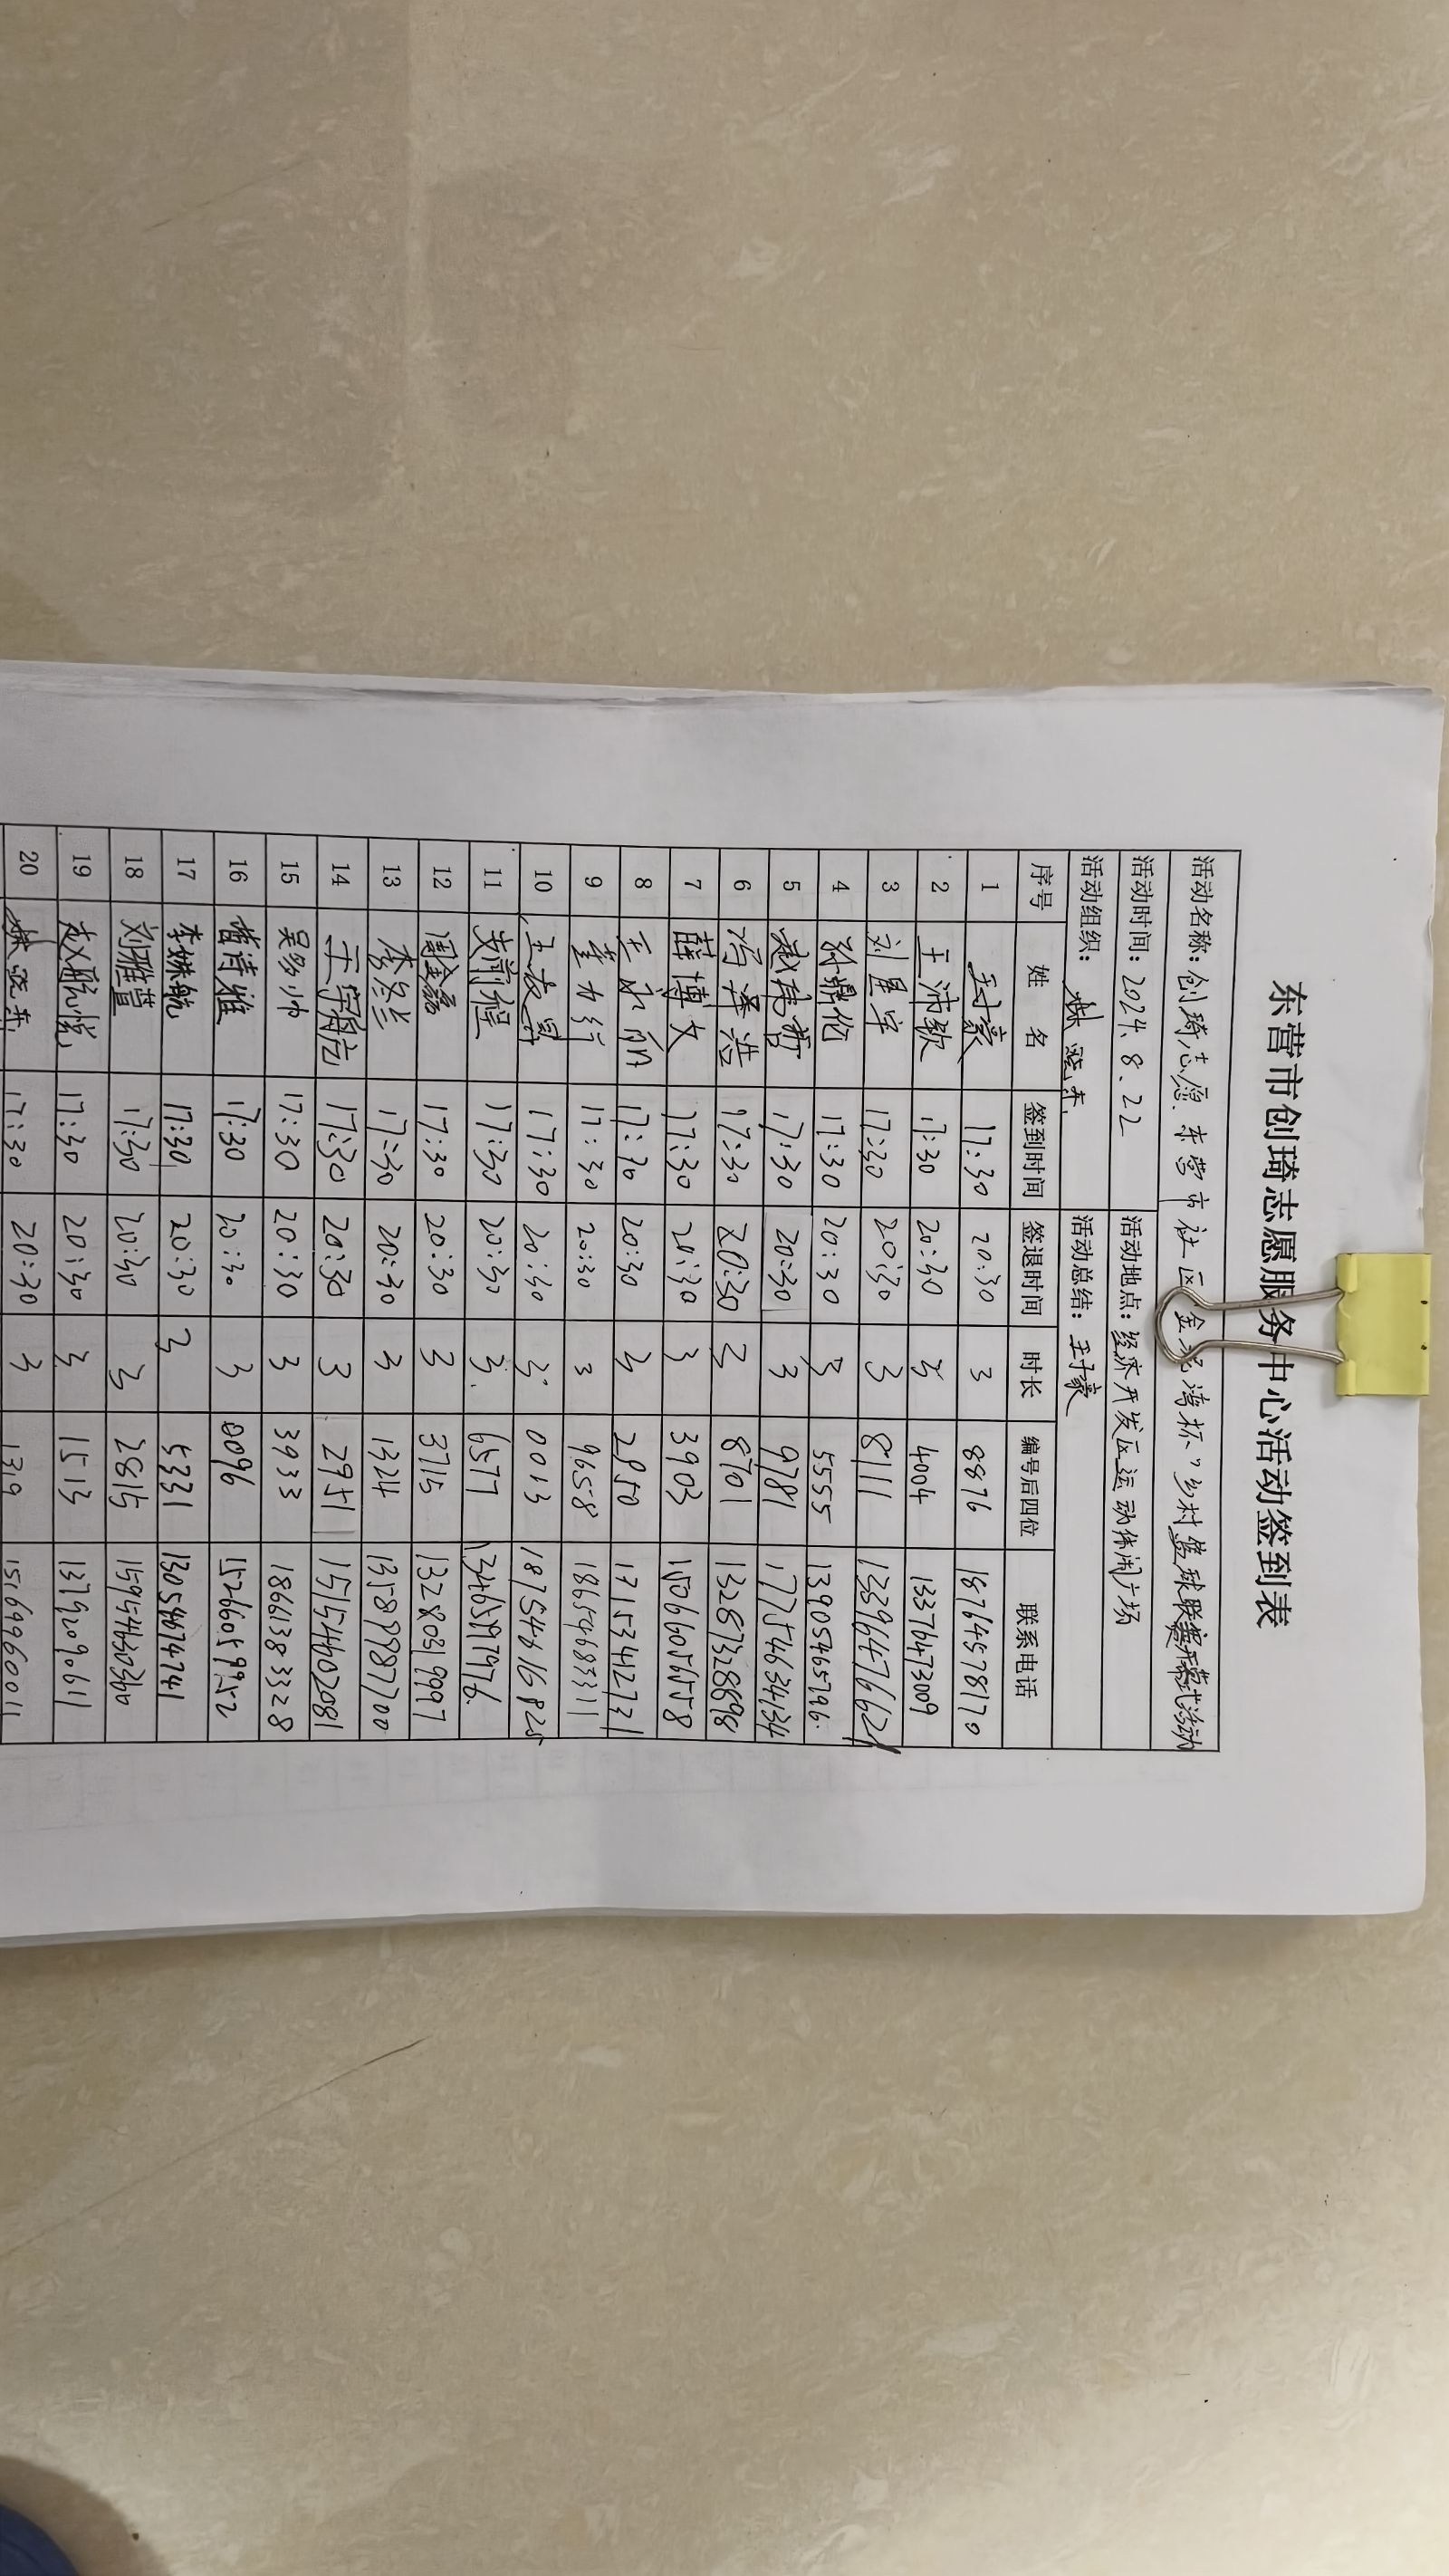 东营市创琦志愿服务中心活动签到表
活动名称：创琦志愿.东营市社区金 湾杯"乡村篮球联赛开幕式活动
活动时间：2024.8.22 活动地点：经济开发区运动休闲广场
活动组织： 晓东. 活动总结：王子豪
序号 姓名 签到时间 签退时间 时长 编号后四位 联系电话
1 王子豪 17:30 20:30 3 8876 18764578170
2 王沛歌 17:30 20:30 3 4004 13376473009
3 刘星宇 17:30 20:30 3 8111 13396476621
4 孙鼎伦 17:30 20:30 3 5555 13905465796
5 17:30 20:30 3 9781 17754634134
6 冯泽浩 17:30 20:30 3 8701 13287328698
7 薛博文 17:30 20:30 3 3903 15066056558
8 王 丽 17:30 20:30 3 2950 17153412731
9 董力行 17:30 20:30 3 9658 18654683311
10 王 17:30 20:30 3 0013 18754616825
11 17:30 20:30 3 6577 13465397976
12 周金磊 17:30 20:30 3 3715 13280319997
13 李冬兰 17:30 20:30 3 1324 13589987700
14 17:30 20:30 3 2951 15154402081
15 吴多帅 17:30 20:30 3 3933 18661383328
16 曹诗雅 17:30 20:30 3 0096 15266059952
17 李姝航 17:30 20:30 3 5331 13054674741
18 刘雅萱 17:30 20:30 3 2815 15954630360
19 赵 悦 17:30 20:30 3 1513 13792090611
20 晓东 17:30 20:30 3 1319 15169960011